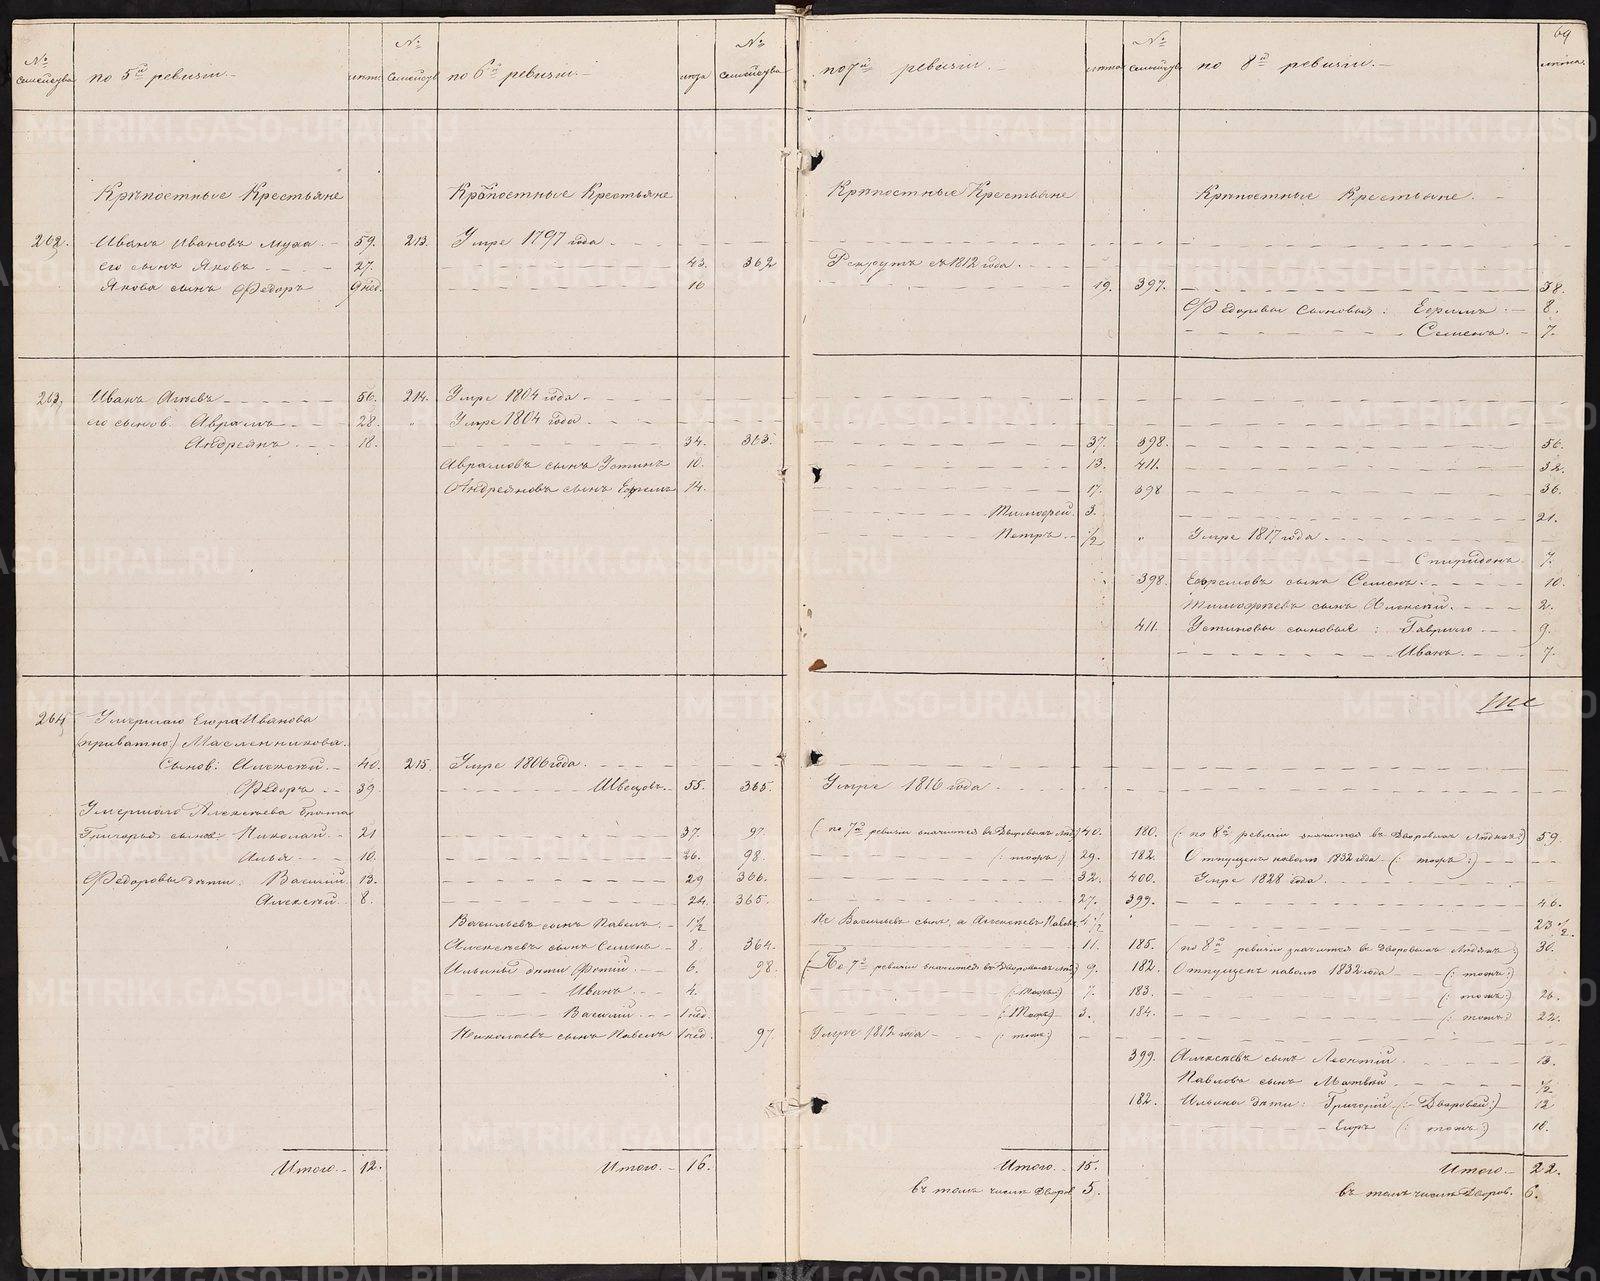 69
№ семейства по 5й ревизiи. лѣта № семейства по 6й ревизiи. лѣта № семейства по 7й ревизiи. лѣта № семейства по 8й ревизiи. лѣта.
Крѣпостные Крестьяне Крѣпостные Крестьяне Крѣпостные Крестьяне Крѣпостные Крестьяне.
262. Иванъ Ивановъ Муха 59. 213. Умре 1797 года
его сынъ Яковъ 27. 43. 362 Рекрутъ съ 1812 года.
Якова сынъ Федоръ 9 нед. 16 19. 397. 38.
Федоровы сыновья: Ефримъ 8.
Семенъ. 7.
263. Иванъ 56. 214. Умре 1804 года
его сынов. Аврамъ 28. " Умре 1804 года
Андреянъ 18. 34. 363. 37. 398. 56.
Аврамовъ сынъ Устинъ 10. 13. 411. 32.
Андреяновъ сынъ Ефремъ 14. 17. 398 36.
Тимофей. 3. 21.
Петръ. 1/2 " Умре 1817 года
Спиридонъ 7.
398. Ефремовъ сынъ Семенъ. 10.
Тимофѣевъ сынъ Алексѣй. 2.
411. Устиновы сыновья: Гаврило 9.
Иванъ 7.
264. Умершаго Егора Иванова
(приватно:) Масленникова.
Сынов: Алексѣй. 40. 215. Умре 1806 года.
Федоръ 39 Швецовъ. 55. 365. Умре 1816 года
Умершаго Алексѣева брата
Григорья сынов. Николай 21 37. 97. (по 7й ревизiи значится въ Дворовыхъ Люд:) 40. 180. (: по 8й ревизiи значится въ Дворовыхъ Людяхъ:) 59.
Илья 10. 26. 98. (: тожъ:) 29. 182. Отпущенъ наволю 1832 года (: тожъ:)
Федоровы дѣти: Василiй. 13. 29 366. 32. 400. Умре 1828 года.
Алексѣй. 8. 24. 365. 27. 399. 46.
Васильевъ сынъ Павелъ 1 1/2 Не Васильевъ сынъ, а Алексѣевъ Павелъ 4 1/2 " 23 1/2.
Алексѣевъ сынъ Семенъ 8. 364. 11. 185. (по 8й ревизiи значится въ Дворовыхъ Людяхъ:) 30.
Ильины дѣти Фотiй. 6. 98. (По 7й ревизiи значится въ Дворовыхъ Люд:) 9. 182. Отпущенъ наволю 1832 года (: тожъ:)
Иванъ 4. (: Тожъ:) 7. 183. (: тожъ:) 26.
Василiй 1 нед. (: Тожъ) 3. 184. (: тожъ:) 22.
Николаевъ сынъ Павелъ 1 нед. 97. Умре 1812 года (: тожъ:)
399. Алексѣевъ сынъ Леонтiй 13.
Павловъ сынъ Матвѣй 1/2
182. Ильина дѣти: Григорiй (: Дворовой:) 12
Егоръ (: тожъ:) 10.
Итого. 12. Итого. 16. Итого. 15. Итого 22.
въ томъ числѣ Дворов 5. въ томъ числѣ Дворов. 6.
METRIKI.GASO-URAL.RU